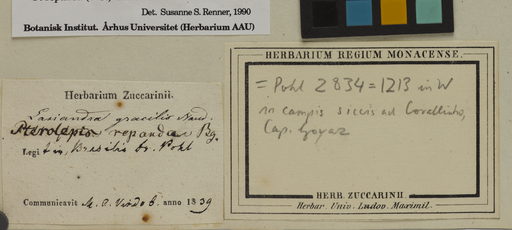 Det. Susanne S. Renner, 1990
Botanisk Institut. Århus Universitet (Herbarium AAU)
Herbarium Zuccarinii.
Lasiandra gracilis Naud.
Pterolepis repanda
Legit in, Brasilia Dr. Pohl
Communicavit M. C. Vindob. anno 1839
HERBARIUM REGIUM MONACENSE.
= Pohl 2834 = 1213 in W
in campis siccis ad Corallinho,
Cap. Goyaz
HERB. ZUCCARINII
Herbar. Univ. Ludov. Maximil.